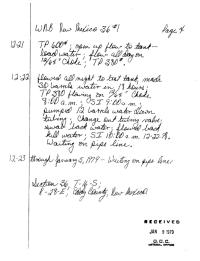 WRB New Mexico 36 #1 Page 4
12-21 TP 600#; open up flow to tank
load water; flow all day on
16/64" Choke; TP 380#.
12-22 flowed all night to test tank, made
30 barrels water in 18 hours;
TP 380 flowing on 16/64" Choke
8:00 a.m.; SI 9:00 a.m.;
pumped 12 barrels water down
tubing; Change out tubing valve;
swab load water; flowed back
kill water; SI 10:00 a.m. 12-22-78.
Waiting on pipe line.
12-23 through January 5, 1979 - Waiting on pipe line
Section 36, T-16-S,
R-28-E, Eddy County, New Mexico
RECEIVED
JAN 9 1979
O.C.C.